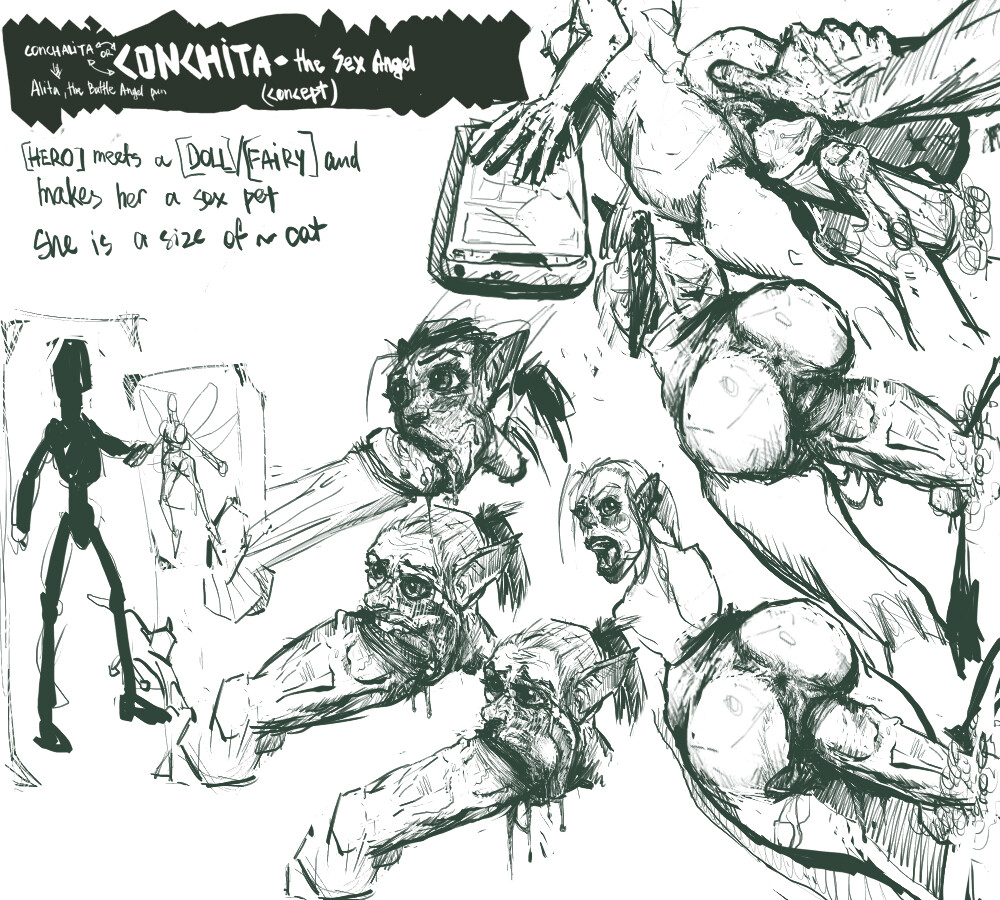 CONCHALITA OR CONCHITA - the Sex Angel
Alita, the Battle Angel pun (concept)
[HERO] meets a [DOLL]/[FAIRY] and
makes her a sex pet
She is a size of ~ cat